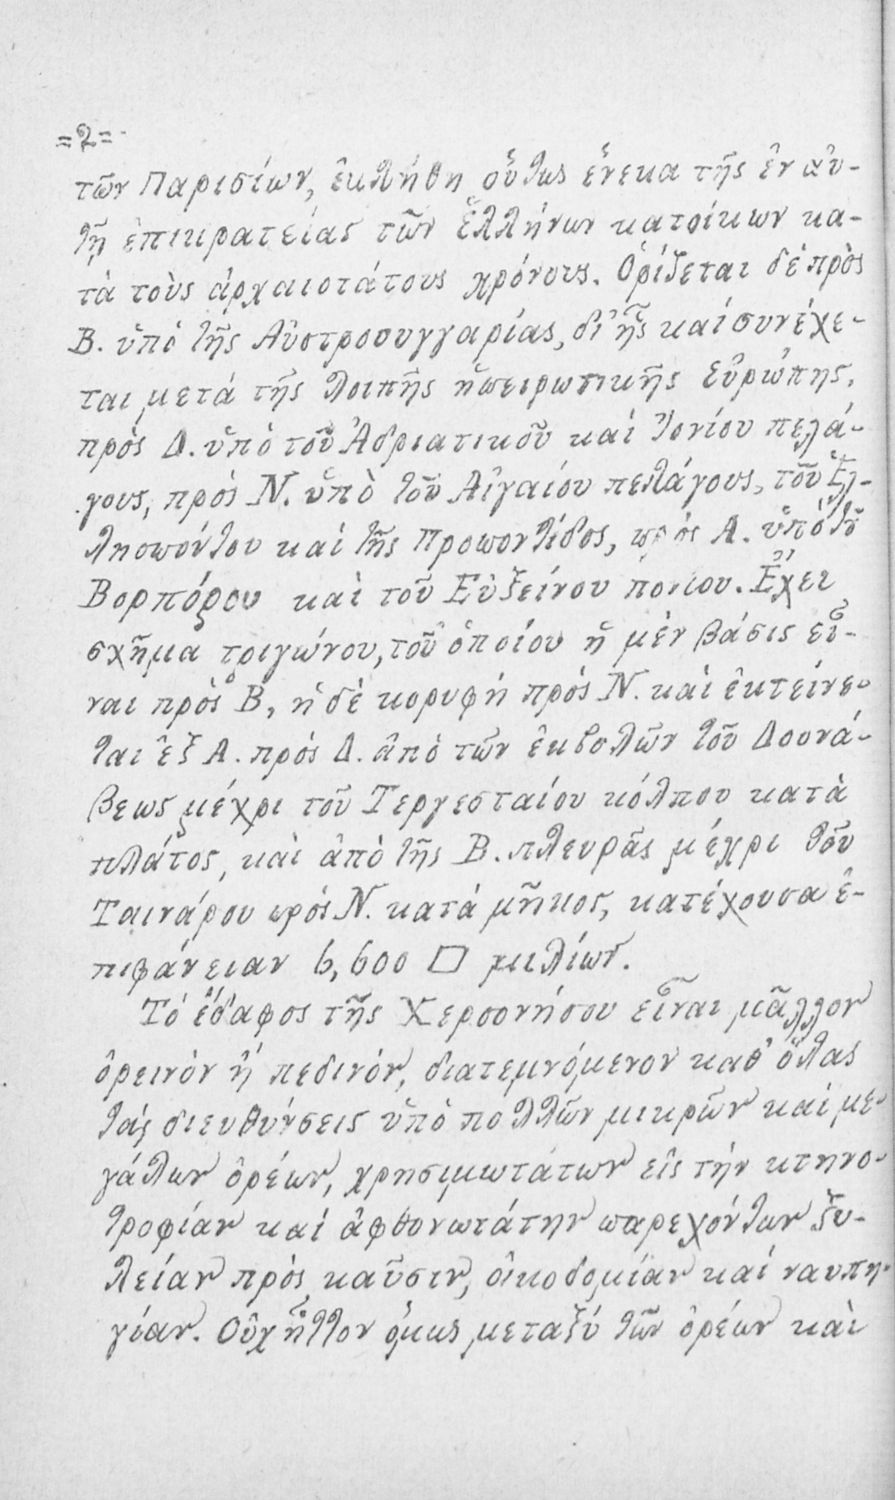 =2=
τῶν Παρισίων, ἐκλήθη οὕτως ἕνεκα τῆς ἐν αὐ-
τῇ ἐπικρατείας τῶν Ἑλλήνων κατοίκων κα-
τὰ τοὺς ἀρχαιοτάτους χρόνους. Ὁρίζεται δὲ πρὸς
Β. ὑπὸ τῆς Αὐστροουγγαρίας, δι' ἧς καὶ συνέχε-
ται μετὰ τῆς λοιπῆς ἠπειρωτικῆς Εὐρώπης,
πρὸς Δ. ὑπὸ τοῦ Ἀδριατικοῦ καὶ Ἰονίου πελά-
γους, πρὸς Ν. ὑπὸ τοῦ Αἰγαίου πελάγους, τοῦ Ἑλ-
λησπόντου καὶ τῆς Προποντίδος, πρὸς Α. ὑπὸ τοῦ
Βορπόρου καὶ τοῦ Εὐξείνου πόντου. Ἔχει
σχῆμα τριγώνου, τοῦ ὁποίου ἡ μὲν βάσις εἶ-
ναι πρὸς Β, ἡ δὲ κορυφή πρὸς Ν. καὶ ἐκτείνε-
ται ἐξ Α. πρὸς Δ. ἀπὸ τῶν ἐκβολῶν τοῦ Δουνά-
βεως μέχρι τοῦ Τεργεσταίου κόλπου κατὰ
πλάτος, καὶ ἀπὸ τῆς Β. πλευρᾶς μέχρι τοῦ
Ταινάρου πρὸς Ν. κατὰ μῆκος, κατέχουσα ἐ-
πιφάνειαν 6,600 □ μιλίων.
Τὸ ἔδαφος τῆς Χερσονήσου εἶναι μᾶλλον
ὀρεινὸν ἢ πεδινόν, διατεμνόμενον καθ' ὅλας
τὰς διευθύνσεις ὑπὸ πολλῶν μικρῶν καὶ με-
γάλων ὀρέων, χρησιμωτάτων εἰς τὴν κτηνο-
τροφίαν καὶ ἀφθονωτάτην παρεχόντων ξυ-
λείαν πρὸς καῦσιν, οἰκοδομίαν καὶ ναυπη-
γίαν. Οὐχ ἧττον ὅμως μεταξὺ τῶν ὀρέων καὶ